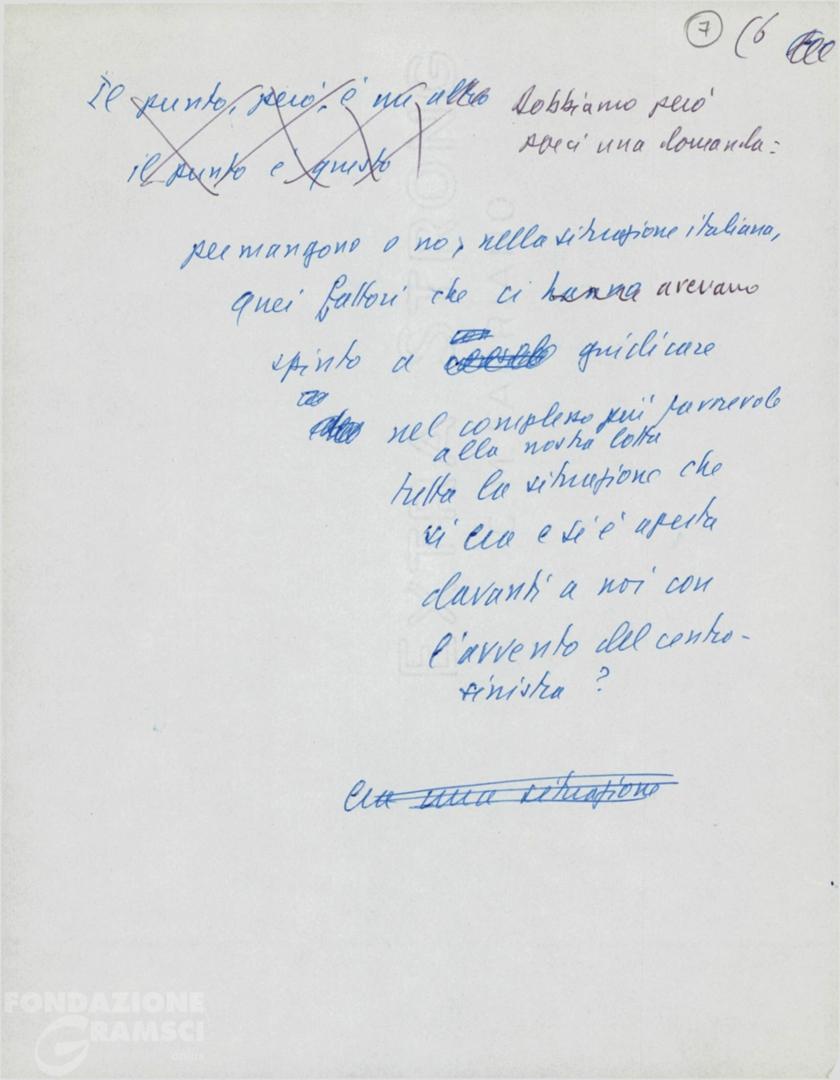 7 (6
Il punto, però, è un altro Dobbiamo però
porci una domanda:
il punto è questo
permangono o no, nella situazione italiana,
quei fattori che ci hanno avevano
spinto a giudicare
nel complesso più favorevole
alla nostra lotta
tutta la situazione che
si era e si è aperta
davanti a noi con
l'avvento del centro-
sinistra ?
Era una situazione
EXTRA STRONG
FONDAZIONE
GRAMSCI
onlus